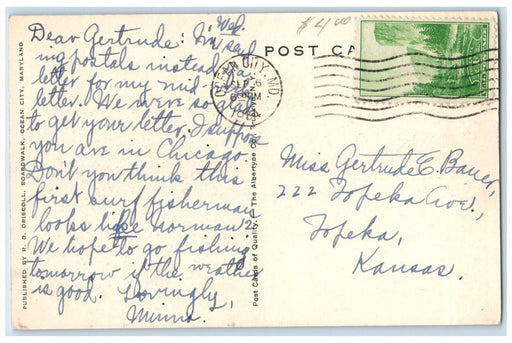 Wed.
Dear Gertrude: I'm mail
ing postals instead of a
letter for my mid week
letter. We were so glad
to get your letter. I suppose
you are in Chicago.
Don't you think this
first surf fisherman
looks like Norman?
We hope to go fishing
tomorrow if the weather
is good. Lovingly,
Minna.
$4.00
POST CA
OCEAN CITY, MD.
SEP 26
6 PM
Miss Gertrude E. Bauer,
222 Topeka Ave.,
Topeka,
Kansas.
PUBLISHED BY R. D. DRISCOLL, BOARDWALK, OCEAN CITY, MARYLAND
Post Cards of Quality. — The Albertype Co.